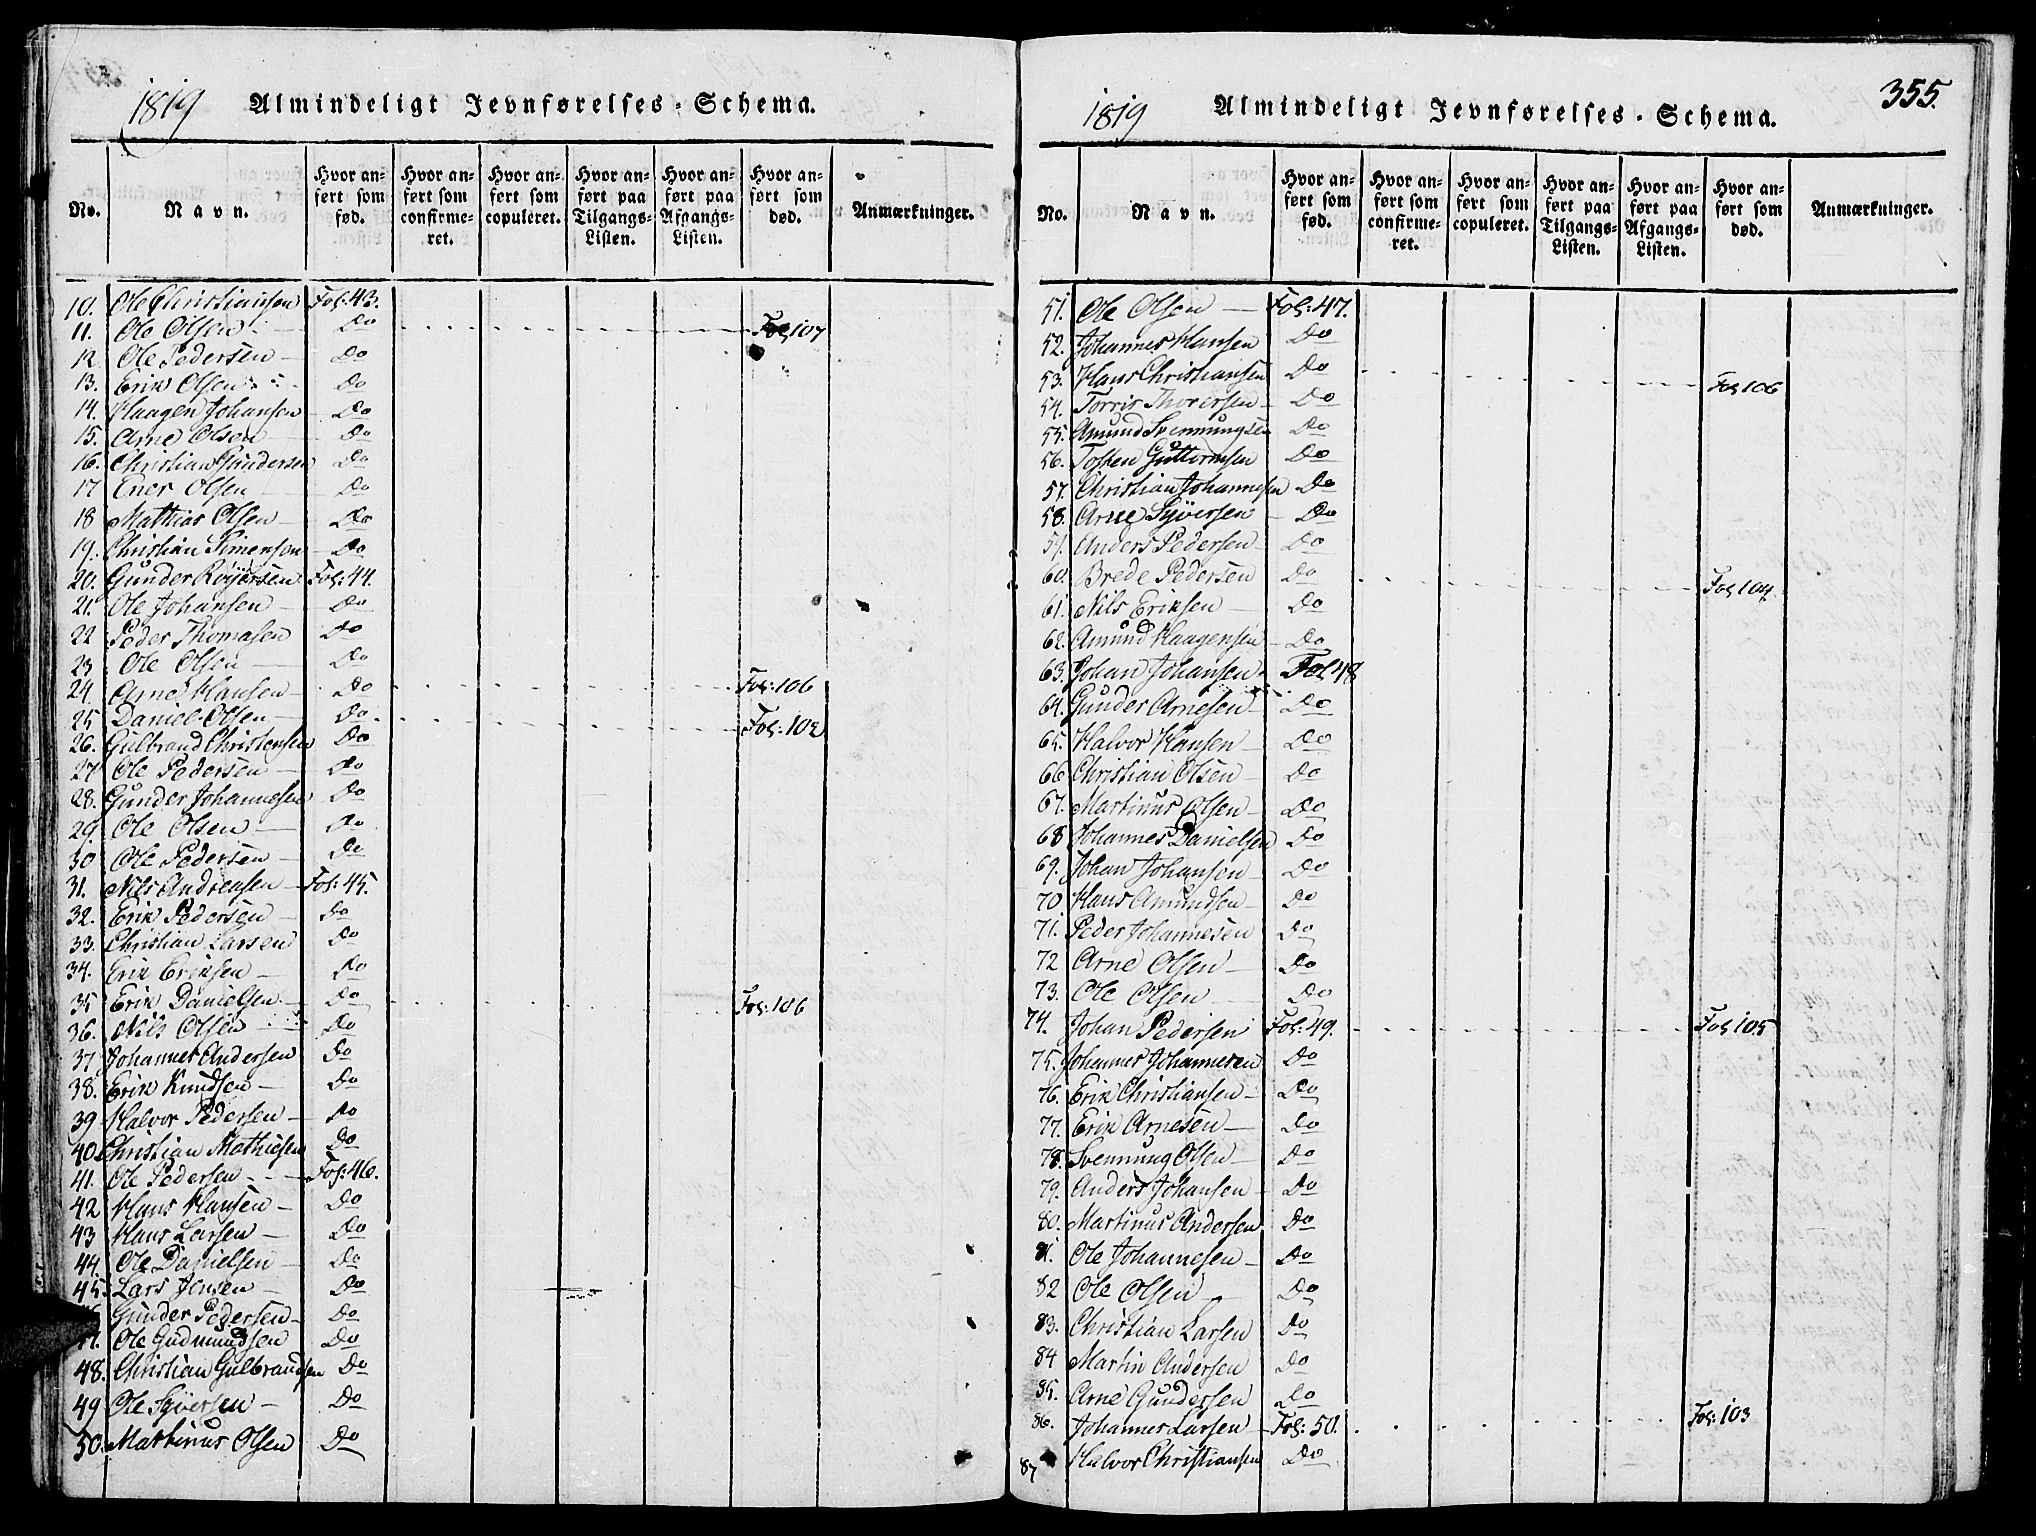 1819 Almindeligt Jevnførelses-Schema.
No. Navn. Hvor anført som fød. Hvor anført som confirmeret. Hvor anført som copuleret. Hvor anført paa Tilgangs-Listen. Hvor anført paa Afgangs-Listen. Hvor anført som død. Anmærkninger.
10. Ole Christiansen Fol: 43.
11. Ole Olsen Do Fol 107
12 Ole Pedersen Do
13. Erik Olsen Do
14. Haagen Johansen Do
15. Arne Olsen Do
16. Christian Gundersen Do
17 Ener Olsen Do
18 Mathias Olsen Do
19. Christian Simensen Do
20. Gunder Röyersen Fol: 44.
21. Ole Johansen Do
22 Peder Thomasen Do
23 Ole Olsen Do
24. Arne Hansen Do Fol: 106
25 Daniel Olsen Do Fol: 102
26. Gulbrand Christensen Do
27 Ole Pedersen Do
28. Gunder Johannesen Do
29. Ole Olsen Do
30 Ole Pedersen Do
31. Nils Andreasen Fol: 45.
32. Erik Pedersen Do
33. Christian Larsen Do
34. Erik Eriksen Do
35 Erik Danielsen Do Fol: 106
36. Nils Olsen Do
37 Johannes Andersen Do
38. Erik Knudsen Do
39 Halvor Pedersen Do
40. Christian Mathiesen Do
41. Ole Pedersen Fol: 46.
42 Hans Hansen Do
43 Hans Larsen Do
44. Ole Danielsen Do
45. Lars Jensen Do
Gunder Pedersen Do
Ole Gudmundsen Do
48. Christian Gulbrandsen Do
49 Ole Syversen Do
50. Martinus Olsen Do
1819 Almindeligt Jevnførelses-Schema. 355.
No. Navn. Hvor anført som fød. Hvor anført som confirmeret. Hvor anført som copuleret. Hvor anført paa Tilgangs-Listen. Hvor anført paa Afgangs-Listen. Hvor anført som død. Anmærkninger.
51. Ole Olsen Fol: 47.
52. Johannes Hansen Do
53. Hans Christiansen Do Fol 106
54. Torris Thoresen Do
55. Amund Svennungsen Do
56. Tosten Guttormsen Do
57. Christian Johannesen Do
58. Arne Syversen Do
59. Anders Pedersen Do
60. Brede Pedersen Do Fol 104
61. Nils Eriksen Do
62. Amund Haagensen Do
63. Johan Johansen Fol 48
64. Gunder Arnesen Do
65. Halvor Hansen Do
66 Christian Olsen Do
67. Martinus Olsen Do
68 Johannes Danielsen Do
69. Johan Johansen Do
70 Hans Amundsen Do
71. Peder Johannesen Do
72 Arne Olsen Do
73. Ole Olsen Do
74. Johan Pedersen Fol: 49. Fol 105
75. Johannes Johannesen Do
76. Erik Christiansen Do
77. Erik Arnesen Do
78. Svennung Olsen Do
79. Anders Johansen Do
80. Martinus Andersen Do
81. Ole Johannesen Do
82 Ole Olsen Do
83. Christian Larsen Do
84 Martin Andersen Do
85. Arne Gundersen Do
86. Johannes Larsen Fol: 50. Fol: 103
87 Halvor Christiansen Do